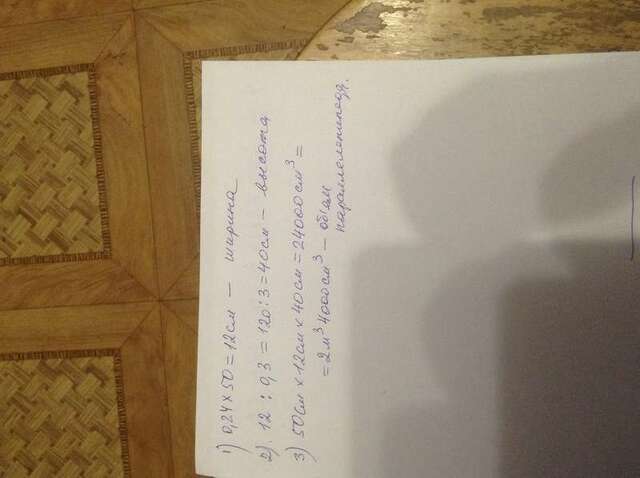 1) 0,24 x 50 = 12 см — ширина
2). 12 : 0,3 = 120 : 3 = 40 см — высота
3) 50 см x 12 см x 40 см = 24000 см³ =
= 2 м³ 4000 см³ — объём
параллелепипеда.